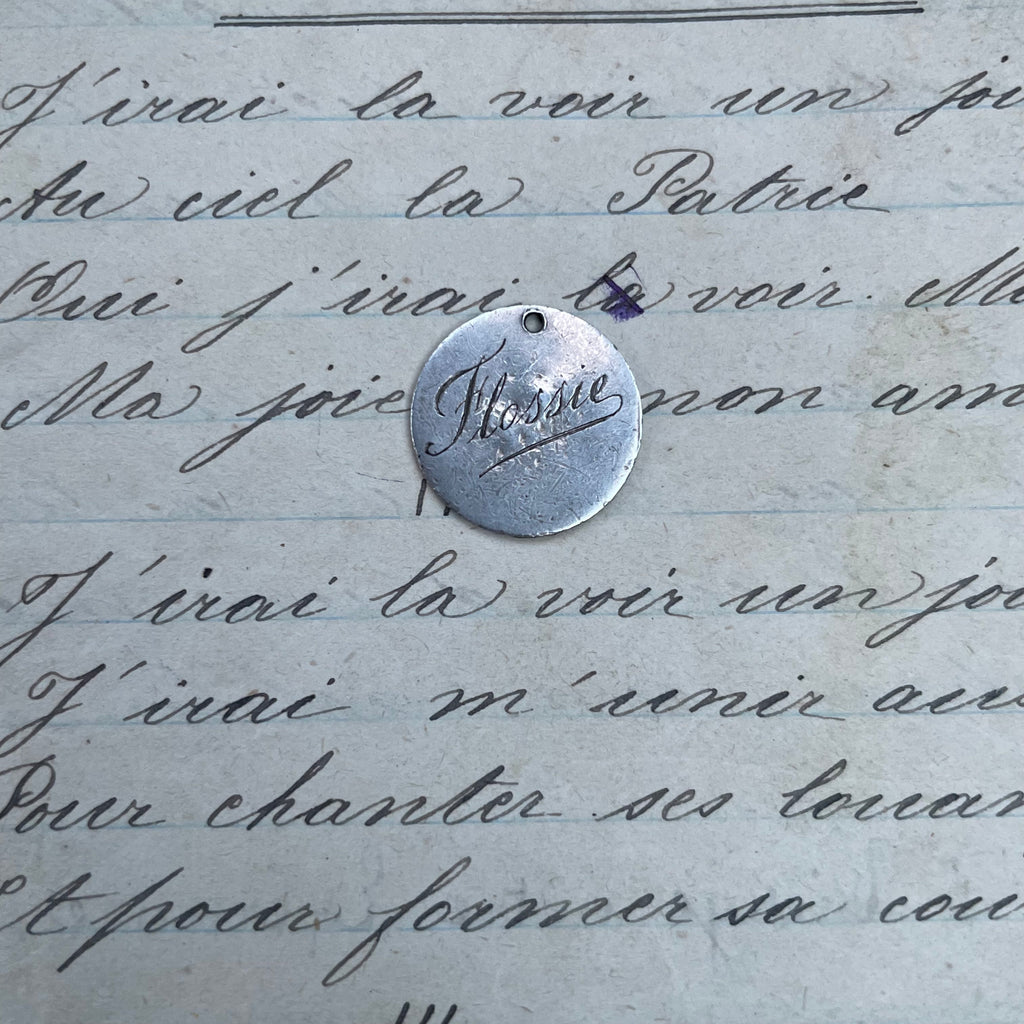 J'irai la voir un
Au ciel la Patrie
Oui j'irai la voir.
Ma joie
mon
Flossie
J'irai la voir un
J'irai m'unir
Pour chanter ses
Et pour former sa
III